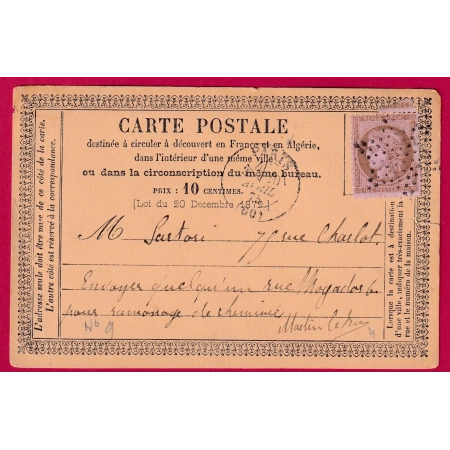 CARTE POSTALE
destinée à circuler à découvert en France et en Algérie,
dans l'intérieur d'une même ville
ou dans la circonscription du même bureau.
PRIX : 10 CENTIMES.
(Loi du 20 Décembre 1872.)
PARIS
M Sartori 75 rue Charlot.
Envoyer quelqu'un rue Mogador
pour ramonage de cheminée
Martin
No 9
L'adresse seule doit être mise de ce côté de la carte.
L'autre côté est réservé à la correspondance.
Lorsque la carte est à destination
d'une ville, indiquer très-exactement la
rue et le numéro de la maison.